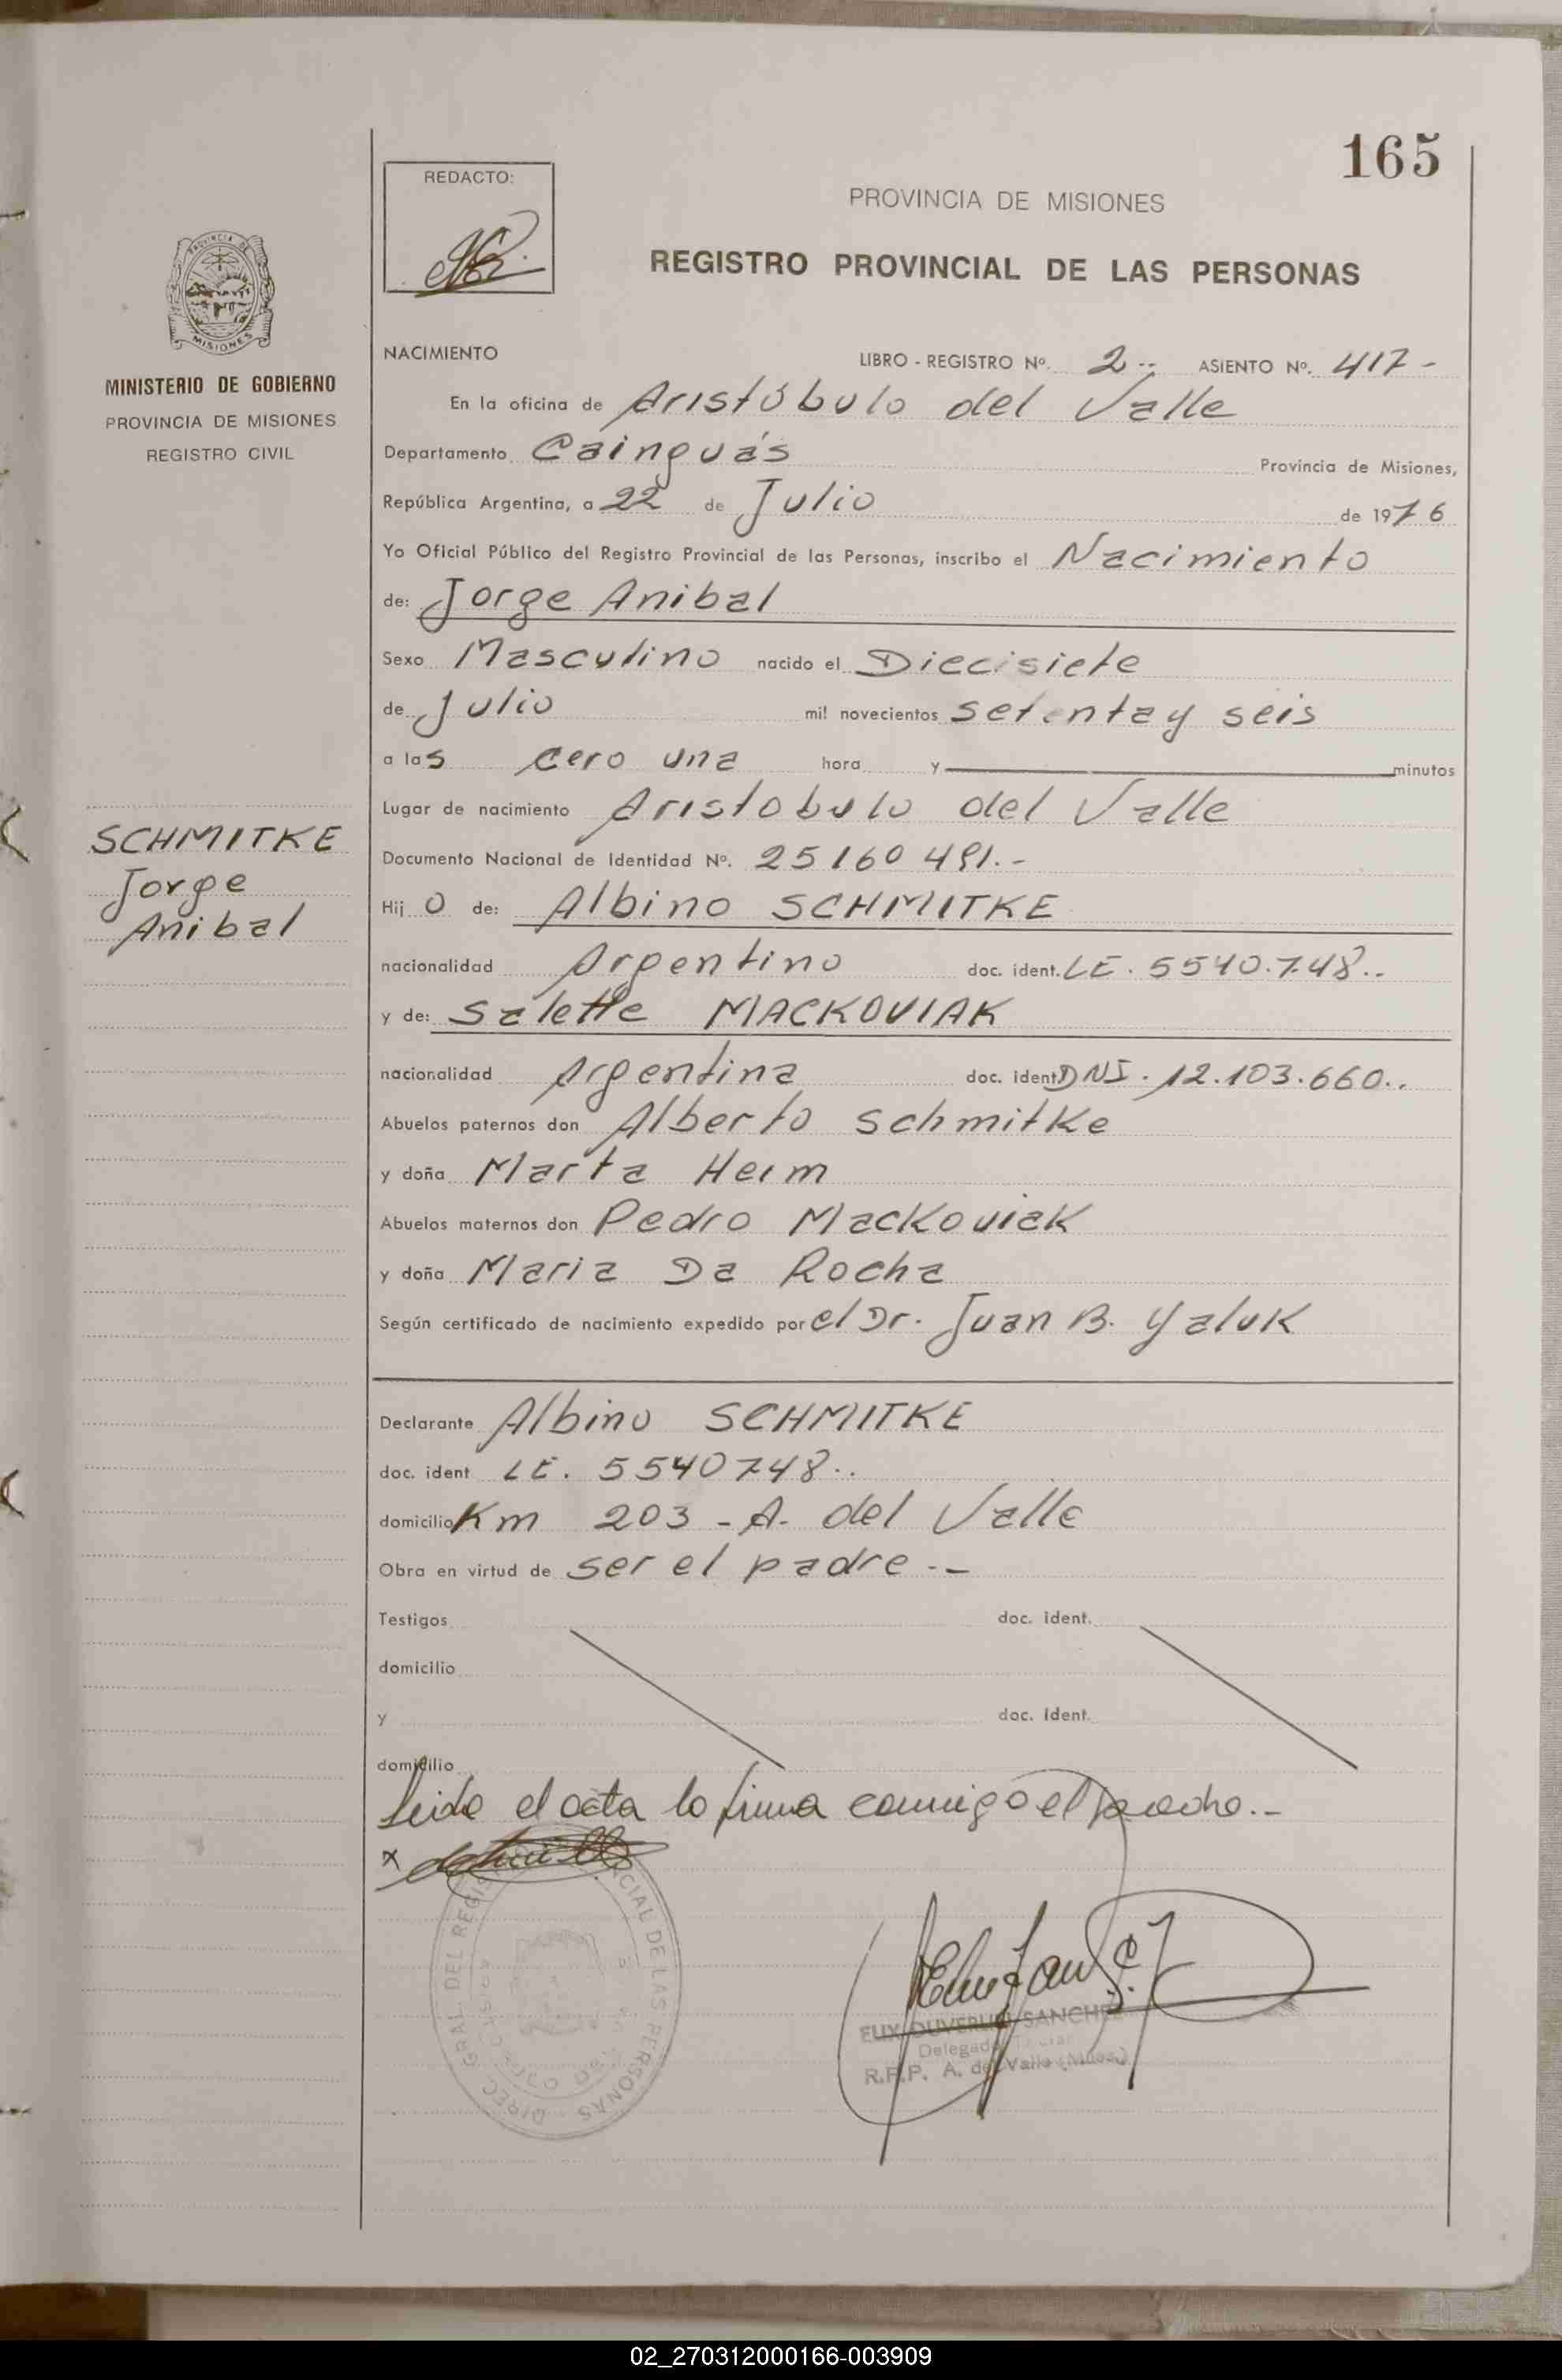 165
REDACTO:
PROVINCIA DE MISIONES
REGISTRO PROVINCIAL DE LAS PERSONAS
MISIONES
MINISTERIO DE GOBIERNO
PROVINCIA DE MISIONES
REGISTRO CIVIL
NACIMIENTO LIBRO - REGISTRO Nº. 2.- ASIENTO Nº. 417-
En la oficina de Aristóbulo del Valle
Departamento Cainguás Provincia de Misiones,
República Argentina, a 22 de Julio de 1976
Yo Oficial Público del Registro Provincial de las Personas, inscribo el Nacimiento
de: Jorge Anibal
Sexo Masculino nacido el Diecisiete
de Julio mil novecientos setenta y seis
a las cero una hora y minutos
Lugar de nacimiento Aristobulo del Valle
SCHMITKE
Jorge
Anibal
Documento Nacional de Identidad Nº. 25160491.-
Hijo de: Albino SCHMITKE
nacionalidad Argentino doc. ident. LE. 5540.748..
y de: Salette MACKOVIAK
nacionalidad Argentina doc. ident DNI. 12.103.660..
Abuelos paternos don Alberto Schmitke
y doña Marta Heim
Abuelos maternos don Pedro Mackoviak
y doña Maria Da Rocha
Según certificado de nacimiento expedido por el Dr. Juan B. Yaluk
Declarante Albino SCHMITKE
doc. ident LE. 5540748..
domicilio Km 203 - A. del Valle
Obra en virtud de ser el padre.-
Testigos doc. ident.
domicilio
y doc. ident.
domicilio
Leida el acta la firma conmigo el padre.-
x
DIREC. GRAL. DEL REGISTRO PROVINCIAL DE LAS PERSONAS
SANCHEZ
Delegado
R.P.P. A. del Valle (Mnes.)
02_270312000166-003909